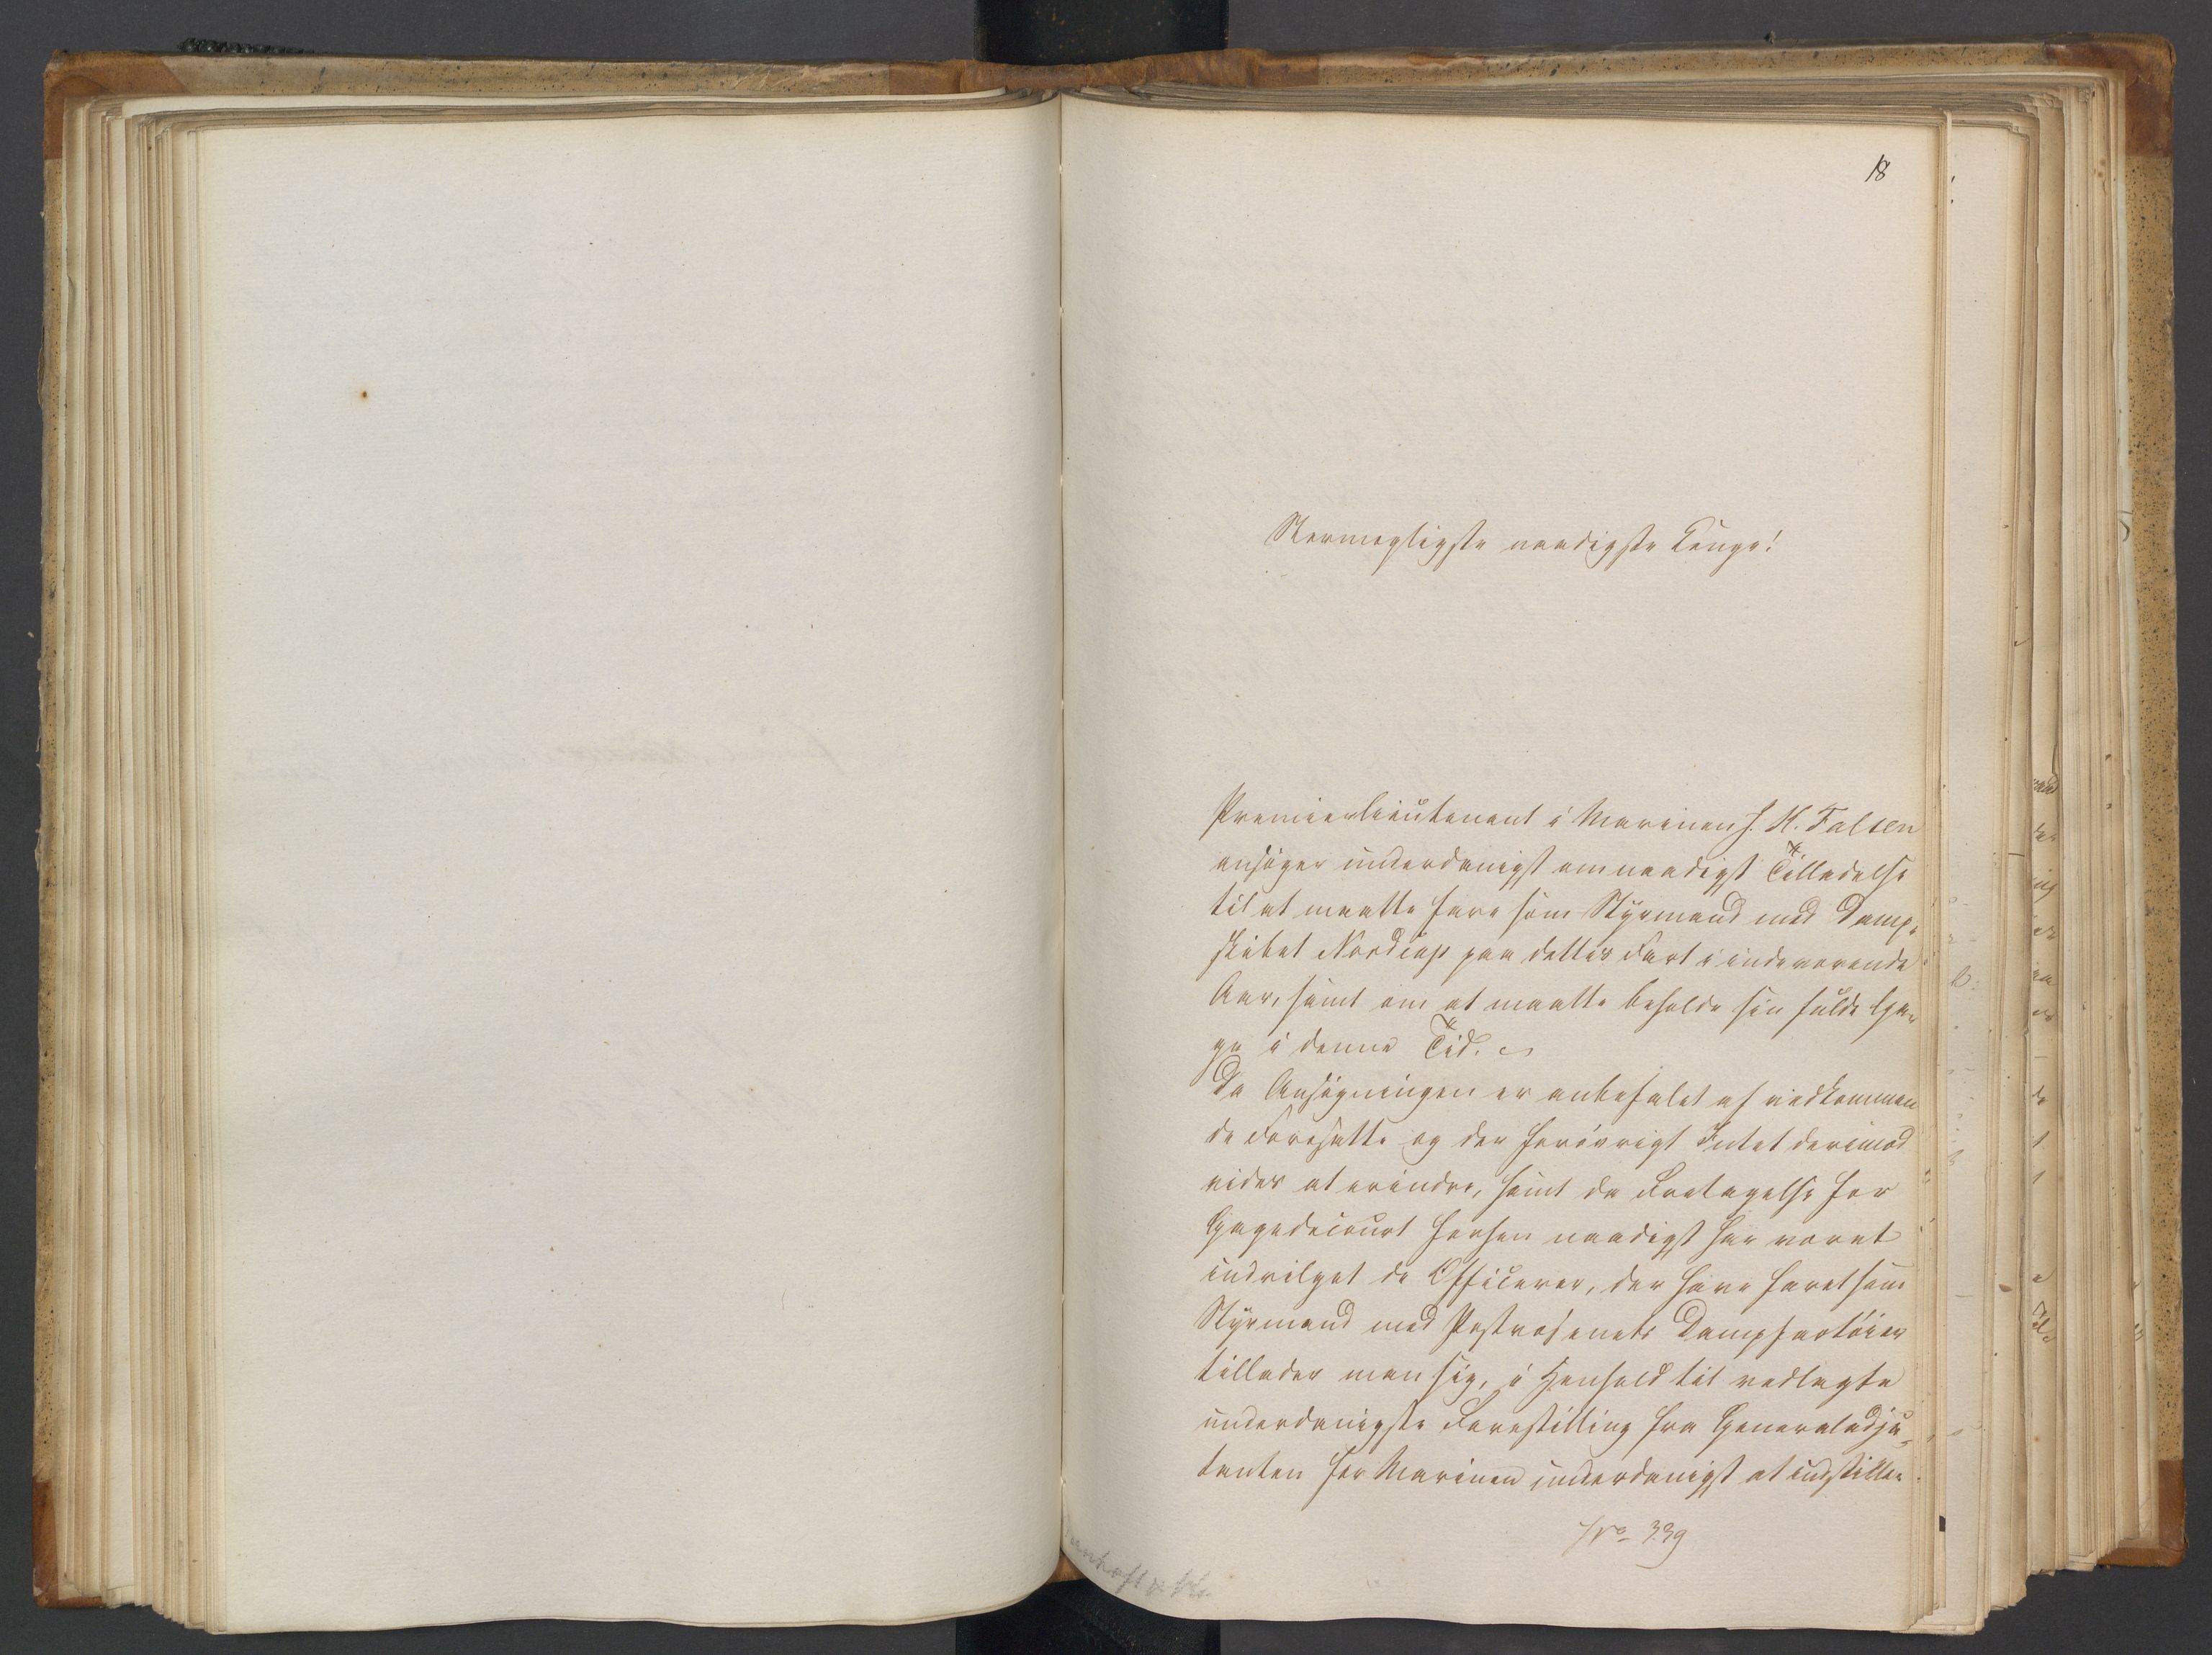 18
Stormægtigste naadigste Konge!
Premierlieutenant i Marinen J. H. Falsen
ansøger underdanigst om naadigst Tilladelse
til at maatte fare som Styrmand med Damp-
skibet Nordcap paa dettes Fart i indeværende
Aar, samt om at maatte beholde sin fulde Ga-
ge i denne Tid.
Da Ansøgningen er anbefalet af vedkommen
de Foresatte og der forøvrigt Intet derimod
vides at erindre, samt da Fritagelse for
Gagedecourt forhen naadigst har været
indvilget de Officerer, der have faret som
Styrmand med Postvæsenets Dampfartøier
tillader man sig, i Henhold til vedlagte
underdanigste Forestilling fra Generaladju-
tanten for Marinen underdanigst at indstille
No 339